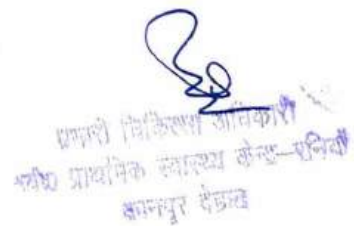 प्रभारी चिकित्सा अधिकारी
प्राथमिक स्वास्थ्य केन्द्र
कानपुर देहात